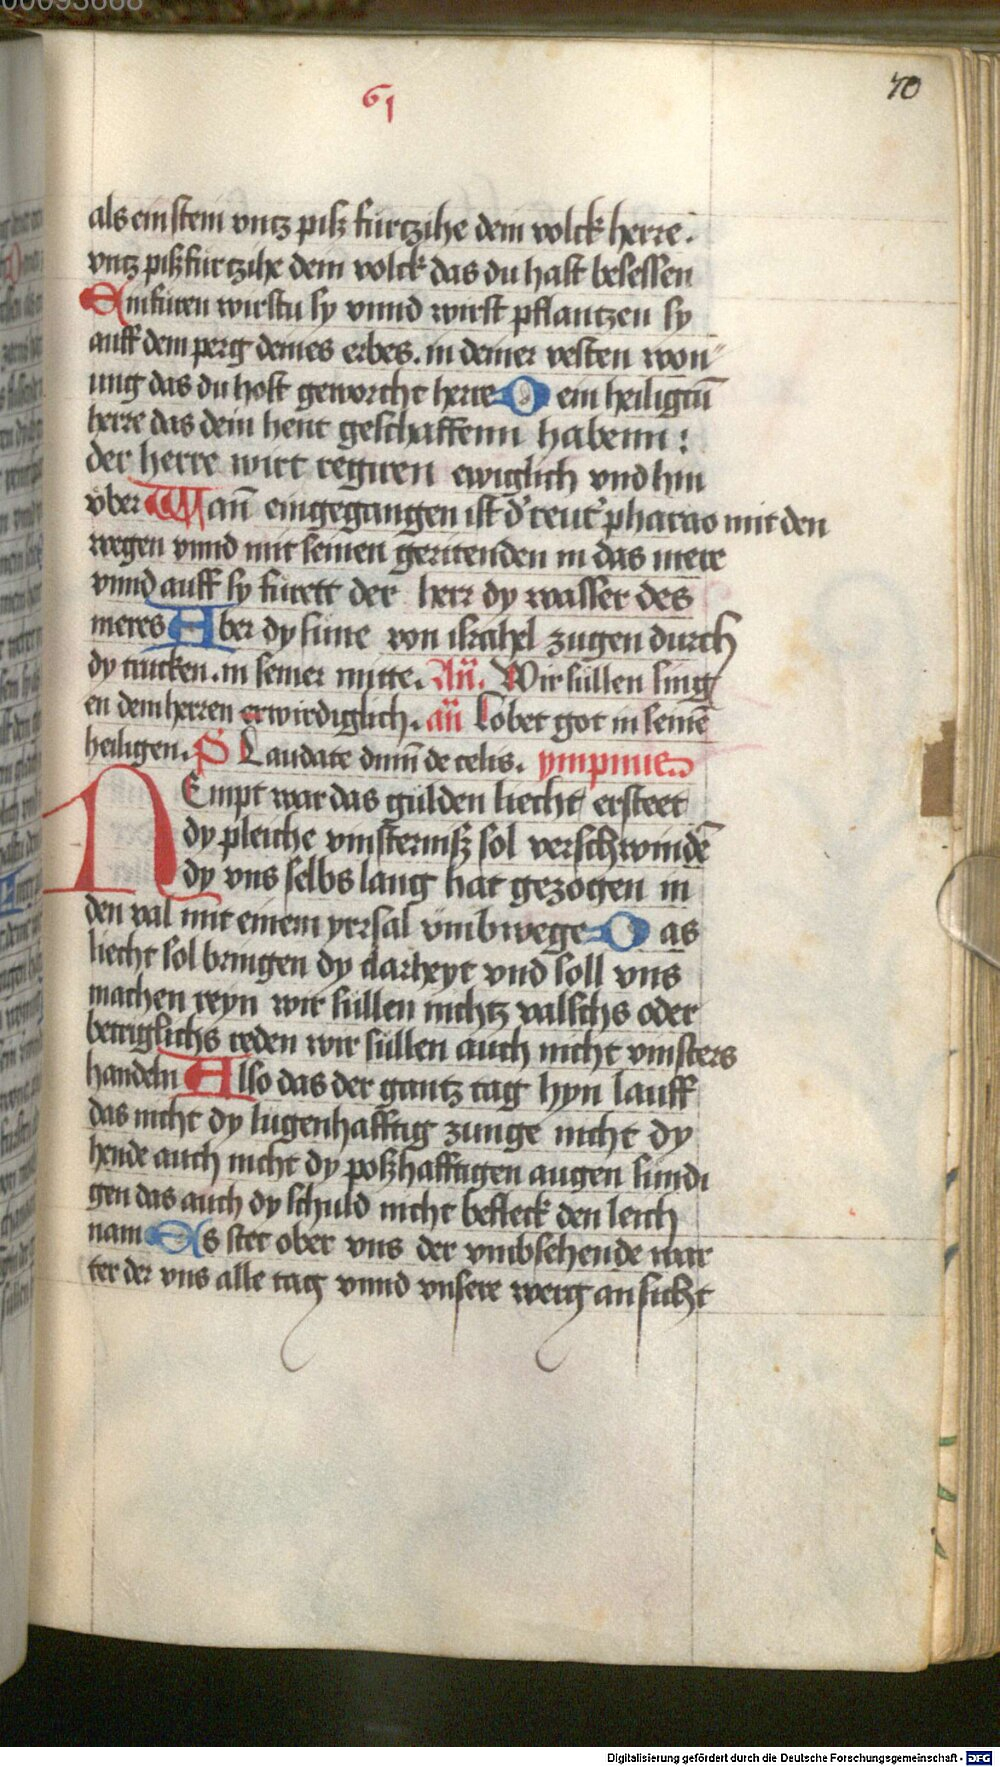 00093668
61
70
als ein stein vntz pisz fürtzihe dem volck herre.
vntz pisz fürtzihe dem volck das du hast besessen
Einfüren wirstu sy vnnd wirst pflantzen sy
auff dem perg deines erbes. in deiner vesten won
ung das du host geworcht herre D ein heiligtū
herre das dein hent geschaffenn habenn :
der herre wirt regiren ewiglich vnd hin
vber Wañ eingegangen ist d' reut' pharao mit den
wegen vnnd mit seinen geritenden in das mere
vnnd auff sy fürett der herr dy wasser des
meres Aber dy süne von israhel zugen durch
dy trucken. in seiner mitte. Añ. Wir süllen sing
en dem herren erwirdiglich. añ Lobet got in seinē
heiligen. P Laudate dnm̄ de celis. ympnus
NEmpt war das gülden liecht ersteet
dy pleiche vinsternisz sol verschwindē
dy vns selbs lang hat gezogen in
den val mit einem yrrsal vmbwege Das
liecht sol bringen dy clarheyt vnd soll vns
machen reyn wir süllen nichtz valschs oder
betriglichs reden wir süllen auch nicht vinsters
handeln Also das der gantz tag hyn lauff
das nicht dy lugenhafftig zunge nicht dy
hende auch nicht dy poszhafftigen augen sundi
gen das auch dy schuld nicht befleck den leich
nam Es stet ober vns der vmbsehende war
ter der vns alle tag vnnd vnsere werg ansicht
Digitalisierung gefördert durch die Deutsche Forschungsgemeinschaft - DFG